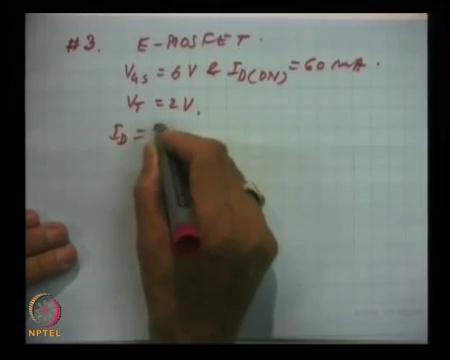 #3. E-MOSFET.
V_GS = 6 V & I_D(ON) = 60 mA.
V_T = 2 V.
I_D =
NPTEL